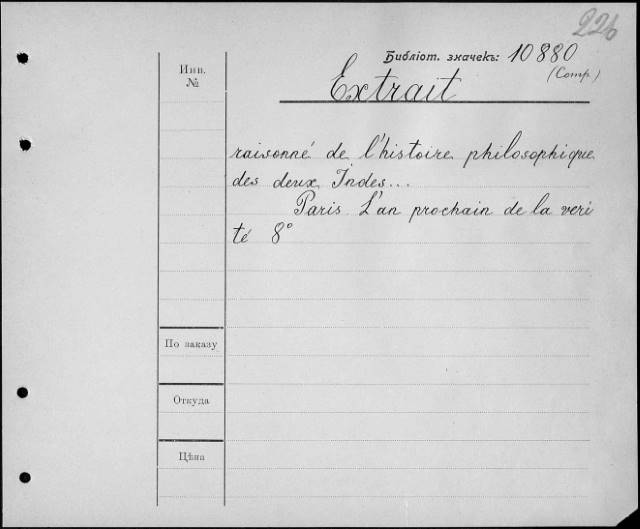 226
Библіот. значекъ: 10880
(Comp.)
Инв.
№
Extrait
raisonné de l'histoire philosophique
des deux Indes...
Paris. L'an prochain de la veri
té 8°
По заказу
Откуда
Цѣна